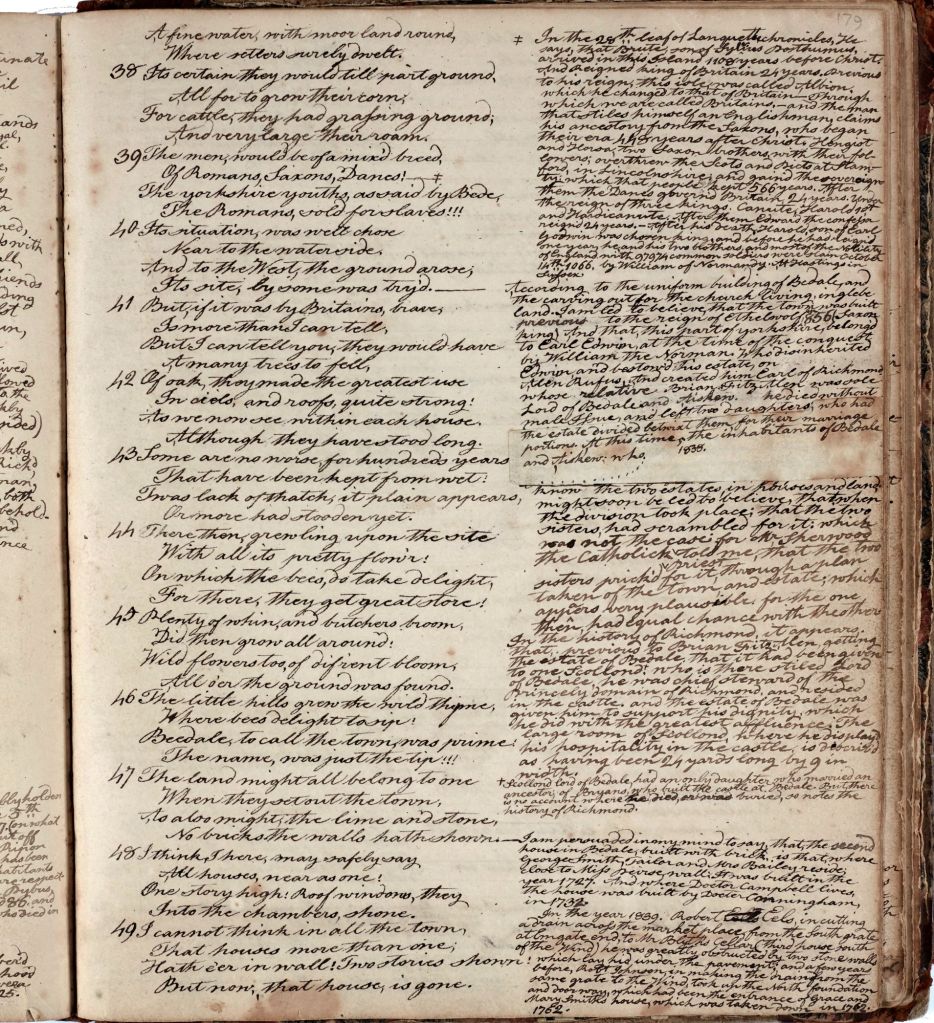 179
A fine water, with moor land round,
Where setlers surely dwelt.
38 Its certain they would till part ground,
All for to grow their corn;
For cattle, they had grafsing ground,
And very large their roam.
39 The men, would be of a mix'd breed,
Of Romans, Saxons, Danes! ‡
The yorkshire youths, as said by Bede,
The Romans, sold for slaves!!!
40 Its situation, was well chose
Near to the water side.
And to the West, the ground arose,
Its site, by some was try'd.
41 But, if it was by Britains, brave,
Is more than I can tell,
But I can tell you, they would have
A many trees to fell,
42 Of oak, they made the greatest use
In ciels, and roofs, quite strong!
As we now see within each house.
Although they have stood long.
43 Some are no worse, for hundreds years
That have been kept from wet!
Twas lack of thatch, it plain appears,
Or more had stooden yet.
44 There thon, grewling upon the site
With all its pretty flow'r!
On which the bees, do take delight,
For there, they get great store!
45 Plenty of whin, and butchers broom,
Did then grow all around!
Wild flowers too, of difrent bloom,
All o'er the ground was found.
46 The little hills grow the wild thyme,
Where bees delight to sip!
Beedale, to call the town, was prime!
The name, was just the tip!!!
47 The land might all belong to one
When they set out the town,
As also might, the lime and stone,
No bricks the walls hath shown
48 I think, There, may safely say
All houses, near as one!
One story high! Roof windows, they
Into the chambers, shone.
49 I cannot think in all the town,
That houses more than one,
Hath e'er in wall! Two stories shown!
But now, that house, is gone.
‡ In the 28th leaf of Lanqueth chronicles, He
says, that Brute, son of Sylvius Posthumus,
arrived in this Island 1108 years before Christ.
And Reigned king of Britain 24 years. Previous
to his reign, this isle, was called Albion.
which he changed to that of Britain — Through
which we are called Britains, — and the man
that stiles himself an Englishman, claims
his ancestory from the Saxons, who began
their era, years after Christ. Hengist
and Horsa, two Saxon brothers, with their fol-
lowers, overthrew the Scots and Picts at Stam-
ford, in Lincolnshire; and gain'd the sovereign
ty; which, that people kept 566 years. After
them the Danes govern'd Britain 24 years. Under
the reign of three kings. Canute, Harold 1st
and Hardicanute. After them Edward the confessor
reign'd 24 years. — After his death, Harold, son of Earl
Godwin was chosen king, and before he had reign'd
one year, he, and his two brothers, and most of the nobility
of England, with 97974 common soldiers were slain October
14th 1066. by William of Normandy. At Hastings in
Sussex
According to the uniform building of Bedale, and
the carving out for the church living, in glebe
land. I am led to believe, that the town was built
previous to the reign of Ethelwolf, 856 (Saxon
king) And that, this part of yorkshire, belong'd
to Earl Edwin, at the time of the conquest
by William the Norman. Who disinherited
Edwin, and bestow'd his estate, on
Allen Rufus, And created him Earl of Richmond
whose relative Brian Fitz Allen was sole
Lord of Bedale and Aiskew. he died without
male Issue, and left two daughters, who had
the estate divided betwixt them, for their marriage
portions. At this time, the inhabitants of Bedale
and Aiskew: who, 1835.
know the two estates, in houses and land
might soon be led to believe, that when
the division took place; that the two
sisters, had scrambled for it; which
was not the case: for Mr Sherwood
the Catholick Priest told me, that the two
sisters prick'd for it, through a plan
taken of the town, and estate; which
appears very plausible. for the one
then, had equal chance with the other
In the history of Richmond, it appears.
that, previous to Brian Fitz Allen getting
the estate of Bedale, that it had been given
to one Scolland! who is there stiled Lord
of Bedale, he was chief steward of the
Princely domain of Richmond, and resided
in the castle. and the estate of Bedale was
given him, to support his dignity, which
he did with the greatest affluence. The
large room of Scolland, where he display'd
his hospitality in the castle, is describ'd
as having been 24 yards long by 9 in
width.
† Scolland lord of Bedale, had an only daughter, who married an
ancestor, of Bryans, who built the castle at Bedale. But, there
is no account where he died, or was buried, so notes the
history of Richmond.
I am persuaded in my mind to say, that, the second
house in Bedale, built with brick, is that, where
George Smith, Tailor and Mrs Bailey, reside;
close to Miss Peirse, wall: It was built in the
year 1727. And where Doctor Campbell lives,
the house was built by Doctor Cunningham,
in 1732
In the year 1839. Robert Eels, in cutting
a drain across the market place, from the South grate
at Emgate end, to Mr Blyths Cellar (third house South
of the Wynd) he was greatly obstructed by two stone walls
which lay hid under the pavement, and a few years
before, Robt Johnson, in making the drain from the
same grate to the Wynd, took up the North foundation
and doorway, which had been the entrance of Grace and
Mary Smiths house, which was taken down in 1762.
1762.